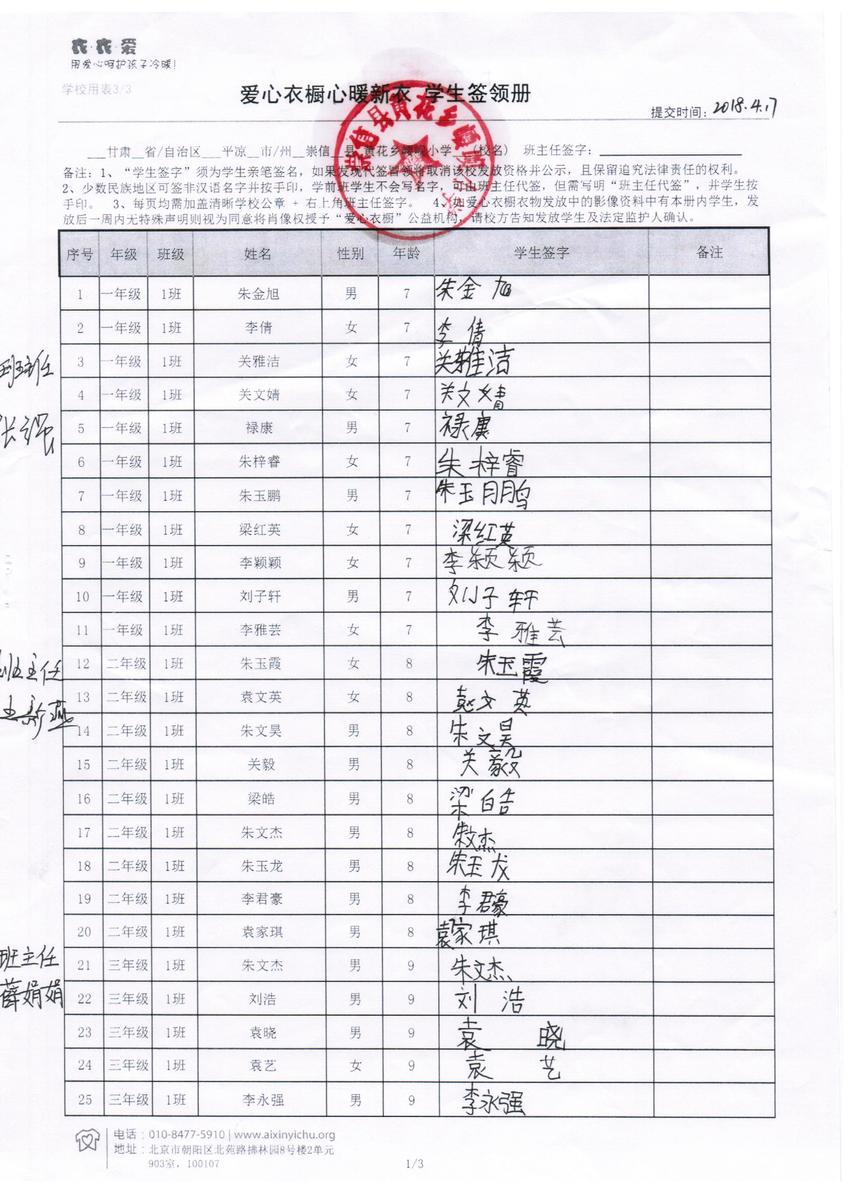 衣·衣·爱
用爱心呵护孩子冷暖!
学校用表3/3
爱心衣橱心暖新衣 学生签领册
提交时间: 2018.4.17
甘肃__省/自治区___平凉__市/州__崇信__县 黄花乡 小学 (校名) 班主任签字:
备注:1、“学生签字”须为学生亲笔签名,如果发现代签冒领将取消该校发放资格并公示,且保留追究法律责任的权利。
2、少数民族地区可签非汉语名字并按手印,学前班学生不会写名字,可由班主任代签,但需写明“班主任代签”,并学生按
手印。 3、每页均需加盖清晰学校公章 + 右上角班主任签字。 4、如爱心衣橱衣物发放中的影像资料中有本册内学生,发
放后一周内无特殊声明则视为同意将肖像权授予“爱心衣橱”公益机构,请校方告知发放学生及法定监护人确认。
序号 年级 班级 姓名 性别 年龄 学生签字 备注
1 一年级 1班 朱金旭 男 7 朱金旭
2 一年级 1班 李倩 女 7 李倩
3 一年级 1班 关雅洁 女 7 关雅洁
班主任
4 一年级 1班 关文婧 女 7 关文婧
5 一年级 1班 禄康 男 7 禄康
张强
6 一年级 1班 朱梓睿 女 7 朱梓睿
7 一年级 1班 朱玉鹏 男 7 朱玉鹏
8 一年级 1班 梁红英 女 7 梁红英
9 一年级 1班 李颖颖 女 7 李颖颖
10 一年级 1班 刘子轩 男 7 刘子轩
11 一年级 1班 李雅芸 女 7 李雅芸
12 二年级 1班 朱玉霞 女 8 朱玉霞
班主任
13 二年级 1班 袁文英 女 8 文英
新燕
14 二年级 1班 朱文昊 男 8 朱文昊
15 二年级 1班 关毅 男 8 关毅
16 二年级 1班 梁皓 男 8 梁皓
17 二年级 1班 朱文杰 男 8 朱文杰
18 二年级 1班 朱玉龙 男 8 朱玉龙
19 二年级 1班 李君豪 男 8 李君豪
20 二年级 1班 袁家琪 男 8 袁家琪
班主任
21 三年级 1班 朱文杰 男 9 朱文杰
薛娟娟
22 三年级 1班 刘浩 男 9 刘浩
23 三年级 1班 袁晓 男 9 袁晓
24 三年级 1班 袁艺 女 9 袁艺
25 三年级 1班 李永强 男 9 李永强
电话:010-8477-5910 | www.aixinyichu.org
地址:北京市朝阳区北苑路拂林园8号楼2单元
903室, 100107
1/3